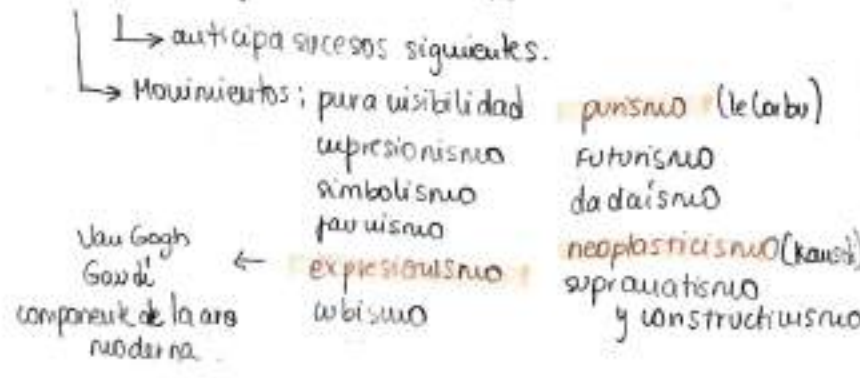 ↳ anticipa sucesos siguientes.
↳ Movimientos: pura visibilidad
impresionismo
simbolismo
fauvismo
expresionismo
cubismo
purismo (le Corbu)
futurismo
dadaísmo
neoplasticismo
supramatismo
y constructivismo
←
Van Gogh
Gaudí
componente de la arq
moderna